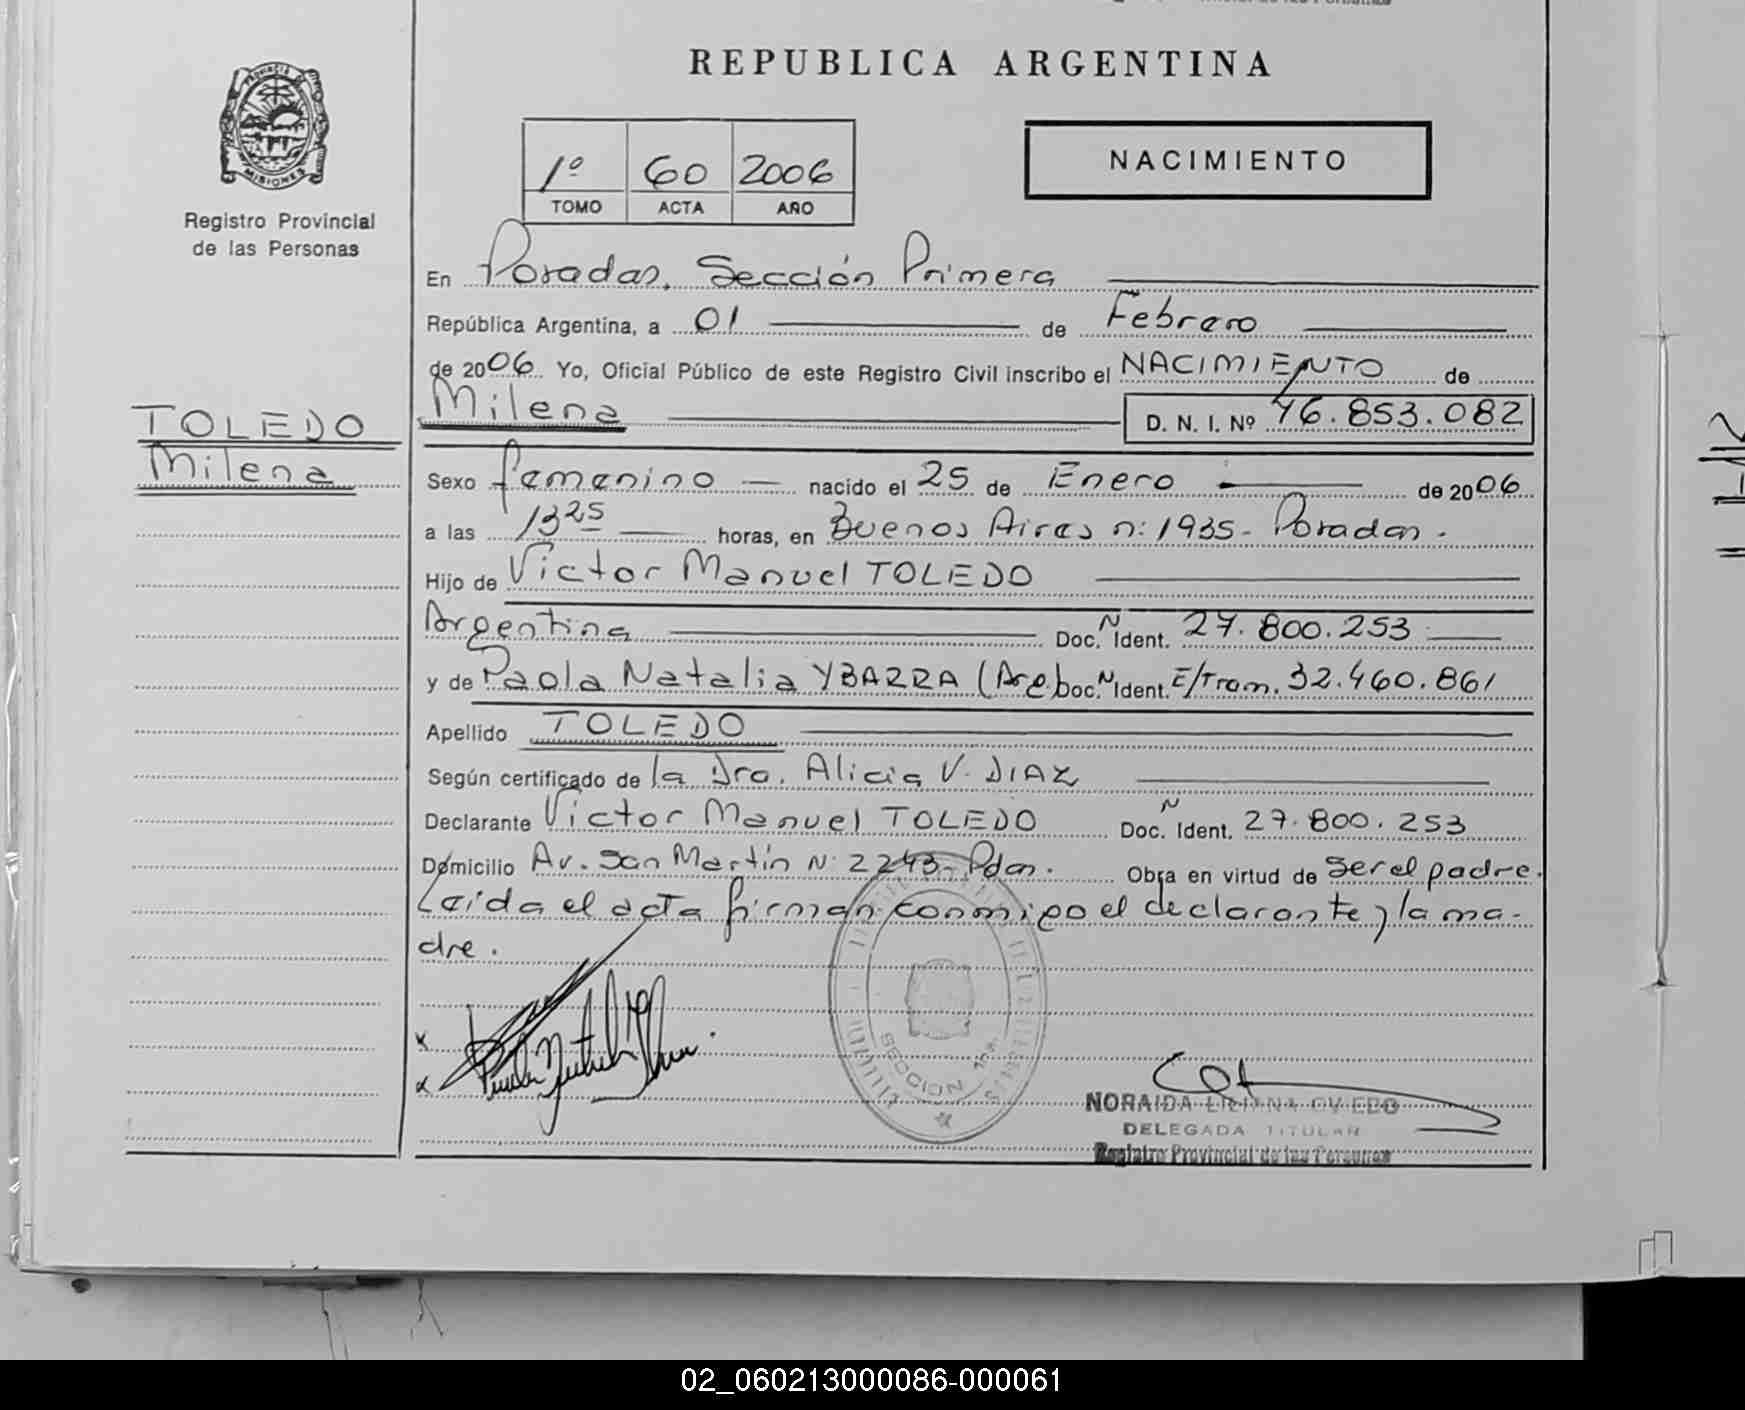 REPUBLICA ARGENTINA
PROVINCIA DE
MISIONES
Registro Provincial
de las Personas
1º 60 2006
TOMO ACTA AÑO
NACIMIENTO
En Posadas, Sección Primera
República Argentina, a 01 de Febrero
de 2006 Yo, Oficial Público de este Registro Civil inscribo el NACIMIENTO de
Milena D. N. I. Nº 46.853.082
TOLEDO
Milena
Sexo femenino nacido el 25 de Enero de 2006
a las 13 25 horas, en Buenos Aires n: 1935 - Posadas.
Hijo de Victor Manuel TOLEDO
Argentina Doc. N Ident. 27.800.253
y de Paola Natalia YBARRA (Arg. Doc. N Ident. E/Tram. 32.460.861
Apellido TOLEDO
Según certificado de la Dra. Alicia V. DIAZ
Declarante Victor Manuel TOLEDO Doc. N Ident. 27.800.253
Domicilio Av. San Martín N: 2243 - Pdas. Obra en virtud de ser el padre.
Leida el acta firman conmigo el declarante y la ma-
dre.
x
x
SECCION 1ra.
NORAIDA LILIANA OVIEDO
DELEGADA TITULAR
Registro Provincial de las Personas
02_060213000086-000061